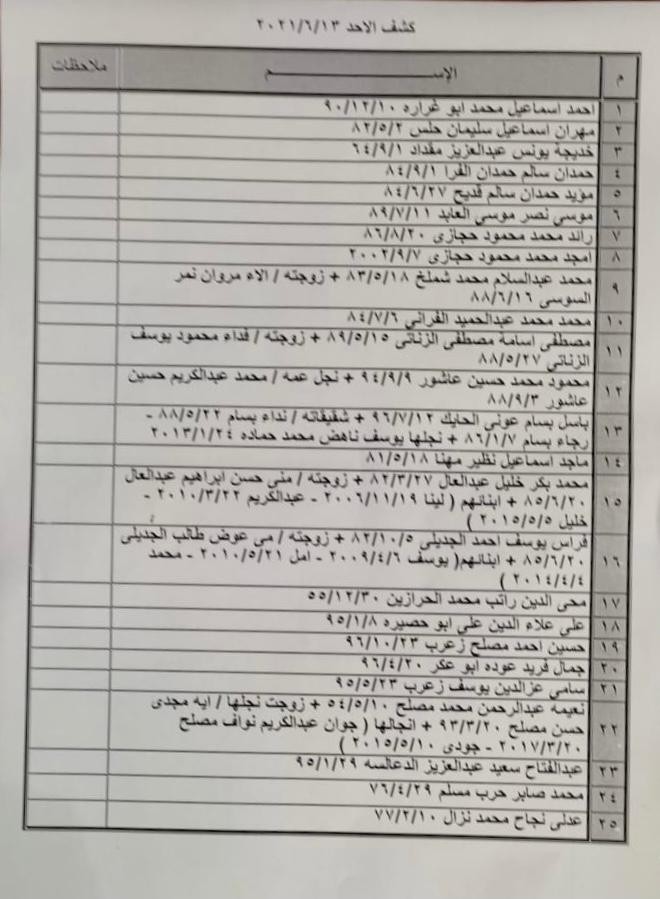 كشف الاحد ٢٠٢١/٦/١٣
م الإســـم ملاحظات
١ احمد اسماعيل محمد ابو غراره ٩٠/١٢/١٠
٢ مهران اسماعيل سليمان حلس ٨٢/٥/٢
٣ خديجة يونس عبدالعزيز مقداد ٦٤/٩/١
٤ حمدان سالم حمدان الفرا ٨٤/٩/١
٥ مؤيد حمدان سالم قديح ٨٤/٦/٢٧
٦ موسي نصر موسي العابد ٨٩/٧/١١
٧ رائد محمد محمود حجازى ٨٦/٨/٢٠
٨ امجد محمد محمود حجازى ٢٠٠٢/٩/٧
٩ محمد عبدالسلام محمد شملخ ٨٣/٥/١٨ + زوجته / الاء مروان نمر
السوسى ٨٨/٦/١٦
١٠ محمد محمد عبدالحميد الفرانى ٨٤/٧/٦
١١ مصطفى اسامة مصطفى الزناتى ٨٩/٥/١٥ + زوجته / فداء محمود يوسف
الزناتى ٨٨/٥/٢٧
١٢ محمود محمد حسين عاشور ٩٤/٩/٩ + نجل عمه / محمد عبدالكريم حسين
عاشور ٨٨/٩/٣
١٣ باسل بسام عونى الحايك ٩٦/٧/١٢ + شقيقاته / نداء بسام ٨٨/٥/٢٢ -
رجاء بسام ٨٦/١/٧ + نجلها يوسف ناهض محمد حماده ٢٠١٣/١/٢٤
١٤ ماجد اسماعيل نظير مهنا ٨١/٥/١٨
١٥ محمد بكر خليل عبدالعال ٨٢/٣/٢٧ + زوجته / منى حسن ابراهيم عبدالعال
٨٥/٦/٢٠ + ابنائهم ( لينا ٢٠٠٦/١١/١٩ - عبدالكريم ٢٠١٠/٣/٢٢ -
خليل ٢٠١٥/٥/٥ )
١٦ فراس يوسف احمد الجديلى ٨٢/١٠/٥ + زوجته / مى عوض طالب الجديلى
٨٥/٦/٢٠ + ابنائهم( يوسف ٢٠٠٩/٤/٦ - امل ٢٠١٠/٥/٢١ - محمد
٢٠١٤/٤/٤ )
١٧ محى الدين راتب محمد الحرازين ٥٥/١٢/٣٠
١٨ على علاء الدين على ابو حصيره ٩٥/١/٨
١٩ حسين احمد مصلح زعرب ٩٦/١٠/٢٣
٢٠ جمال فريد عوده ابو عكر ٩٦/٤/٢٠
٢١ سامي عزالدين يوسف زعرب ٩٥/٥/٢٣
٢٢ نعيمه عبدالرحمن محمد مصلح ٥٤/٥/١٠ + زوجت نجلها / ايه مجدى
حسن مصلح ٩٣/٣/٢٠ + انجالها ( جوان عبدالكريم نواف مصلح
٢٠١٧/٣/٢٠ - جودى ٢٠١٥/٥/١٠ )
٢٣ عبدالفتاح سعيد عبدالعزيز الدعالسه ٩٥/١/٢٩
٢٤ محمد صابر حرب مسلم ٧٦/٤/٢٩
٢٥ عدلى نجاح محمد نزال ٧٧/٢/١٠